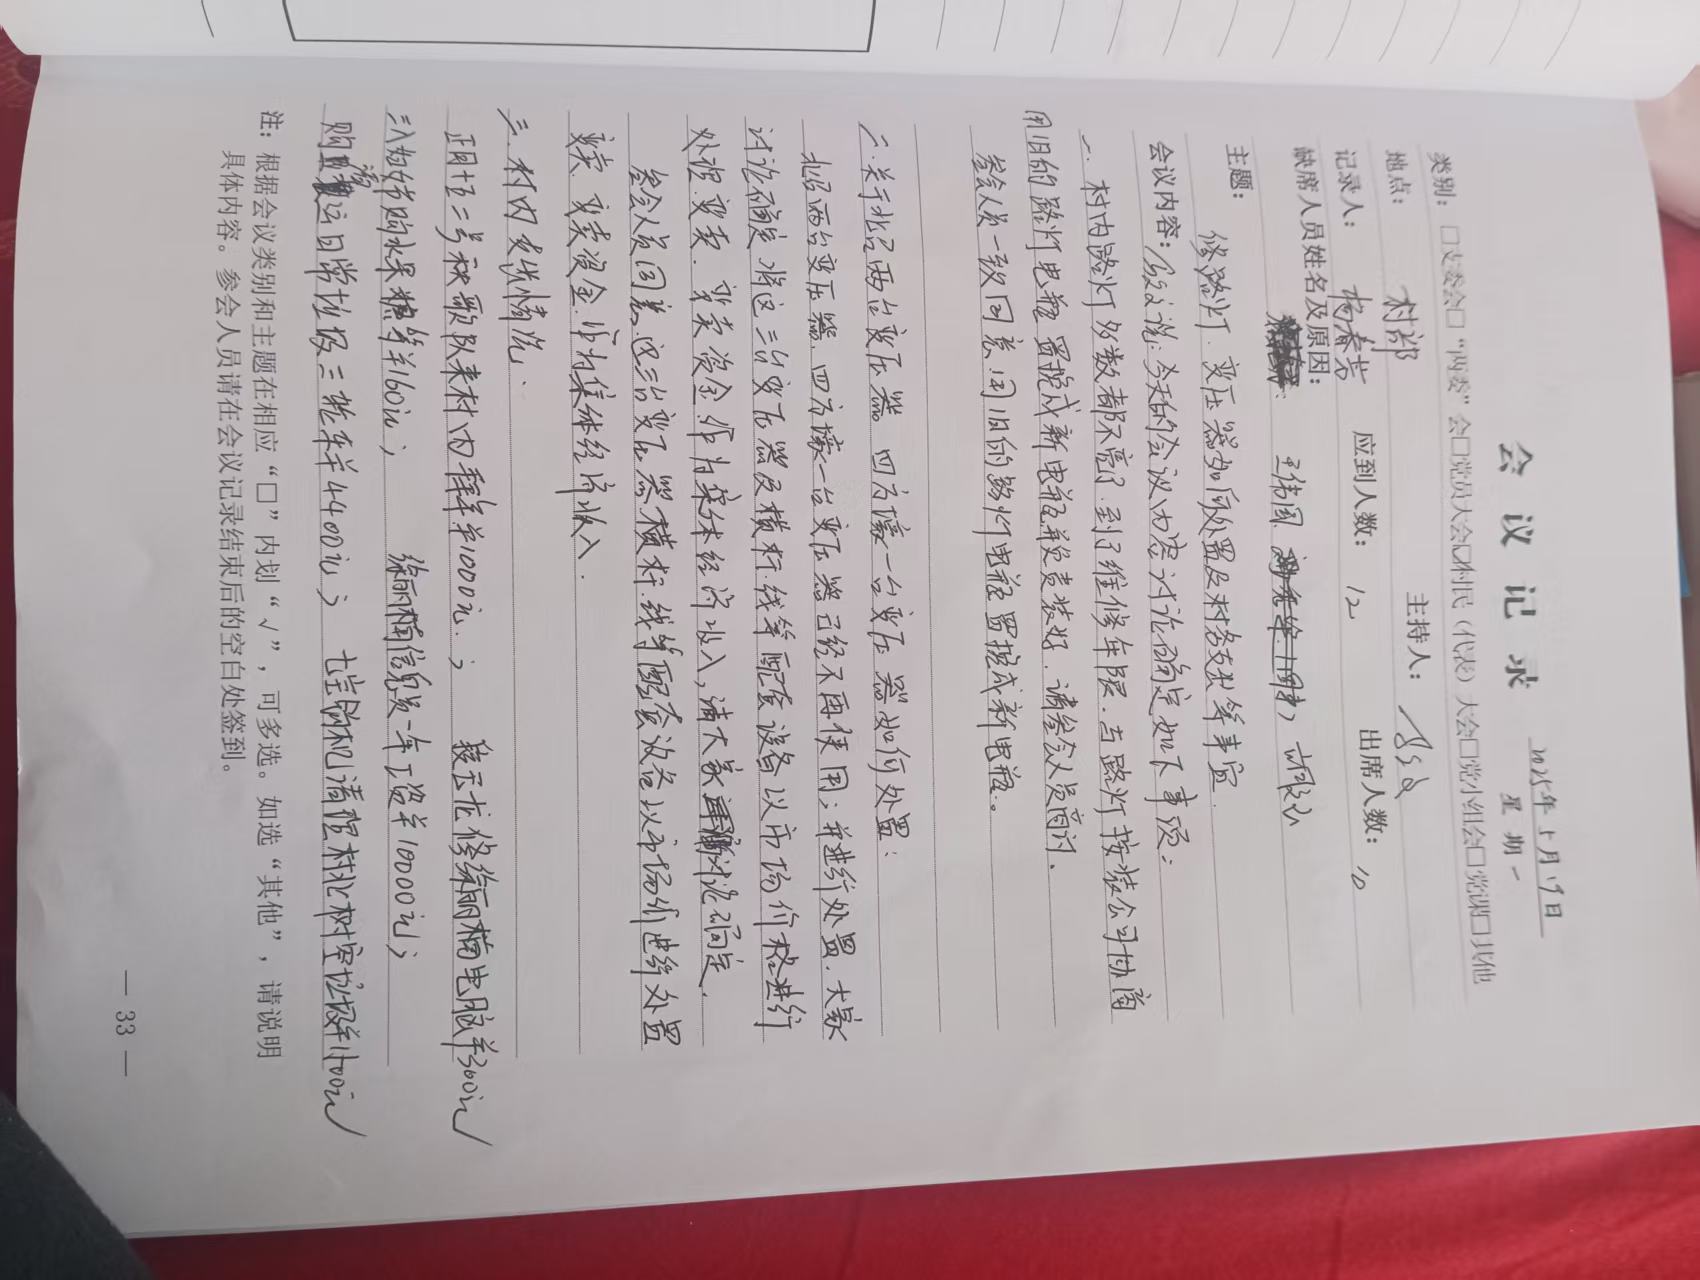 会 议 记 录
2025年5月19日
星期一
类别：□支委会□“两委”会□党员大会☑村民（代表）大会□党小组会□党课□其他
地点： 村部 主持人：
记录人： 杨春芳 应到人数： 12 出席人数： 10
缺席人员姓名及原因：
王伟国
主题： 修路灯．变压器如何处置及村务支出等事宜．
会议内容： 说：今天的会议内容讨论确定如下事项：
一．村内路灯多数都不亮了．到了维修年限．与路灯按装公司协商
用旧的路灯电瓶置换成新电瓶并负责装好．请参会人员商讨．
参会人员一致同意．用旧的路灯电瓶置换成新电瓶。
二．关于北召两台变压器 四方壕一台变压器如何处置：
北召两台变压器．四方壕一台变压器已经不再使用；并进行处置．大家
讨论确定将这三台变压器及横杆．线等配套设备以市场价格进行
处理．变卖．变卖资金．作为集体经济收入，请大家讨论确定．
参会人员同意这三台变压器．横杆．线等配套设备以市场价进行处置
变卖．变卖资金．作为集体经济收入．
三．村内支出情况、
正月十五三号秧歌队来村内拜年1000元．； 修徐丽楠电脑共300元
三八妇女节购水果糖等共160元； 徐丽楠信息员一年工资共10000元；
购置清运日常垃圾三轮车共4400元； 钩机清理村北树空垃圾共1400元
注：根据会议类别和主题在相应“□”内划“√”，可多选。如选“其他”，请说明
具体内容。参会人员请在会议记录结束后的空白处签到。
— 33 —